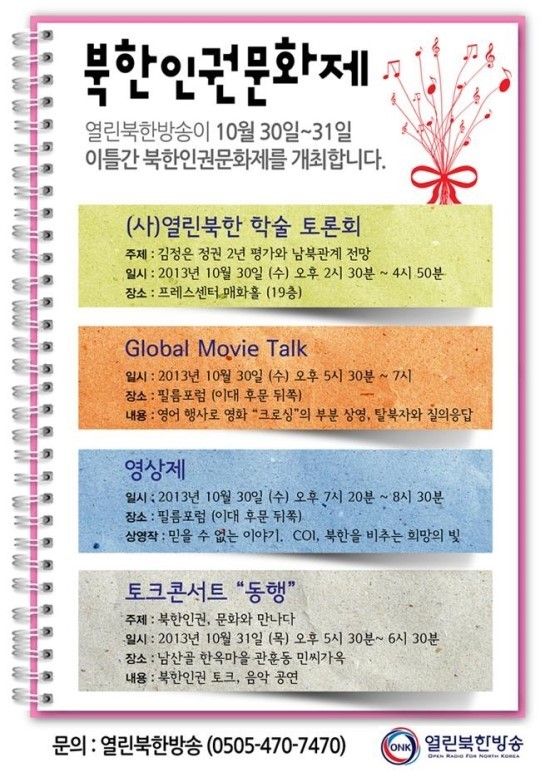 북한인권문화제
열린북한방송이 10월 30일~31일
이틀간 북한인권문화제를 개최합니다.
(사)열린북한 학술 토론회
주제 : 김정은 정권 2년 평가와 남북관계 전망
일시 : 2013년 10월 30일 (수) 오후 2시 30분 ~ 4시 50분
장소 : 프레스센터 매화홀 (19층)
Global Movie Talk
일시 : 2013년 10월 30일 (수) 오후 5시 30분 ~ 7시
장소 : 필름포럼 (이대 후문 뒤쪽)
내용 : 영어 행사로 영화 “크로싱”의 부분 상영, 탈북자와 질의응답
영상제
일시 : 2013년 10월 30일 (수) 오후 7시 20분 ~ 8시 30분
장소 : 필름포럼 (이대 후문 뒤쪽)
상영작 : 믿을 수 없는 이야기. COI, 북한을 비추는 희망의 빛
토크콘서트 “동행”
주제 : 북한인권, 문화와 만나다
일시 : 2013년 10월 31일 (목) 오후 5시 30분~ 6시 30분
장소 : 남산골 한옥마을 관훈동 민씨가옥
내용 : 북한인권 토크, 음악 공연
문의 : 열린북한방송 (0505-470-7470)
ONK 열린북한방송
OPEN RADIO FOR NORTH KOREA